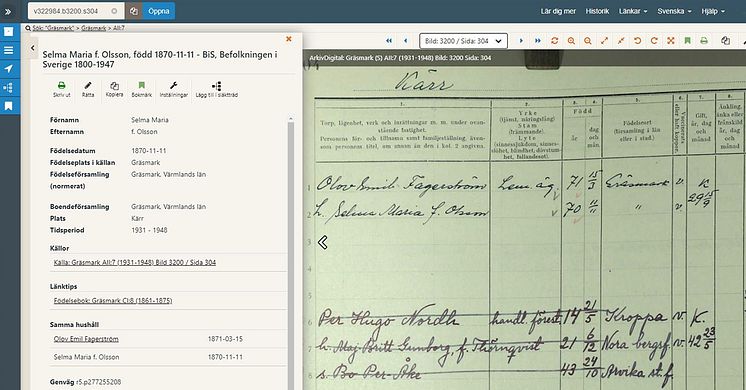 v322984.b3200.s304
Öppna
Lär dig mer Historik Länkar Svenska Hjälp
Sök: "Gräsmark" > Gräsmark > AII:7
Selma Maria f. Olsson, född 1870-11-11 - BiS, Befolkningen i
Sverige 1800-1947
Skriv ut Rätta Kopiera Bokmärk Inställningar Lägg till i släktträd
Förnamn Selma Maria
Efternamn f. Olsson
Födelsedatum 1870-11-11
Födelseplats i källan Gräsmark
Födelseförsamling Gräsmark, Värmlands län
(normerat)
Boendeförsamling Gräsmark, Värmlands län
Plats Kärr
Tidsperiod 1931 - 1948
Källor
Källa: Gräsmark AII:7 (1931-1948) Bild 3200 / Sida 304
Länktips
Födelsebok: Gräsmark CI:8 (1861-1875)
Samma hushåll
Olov Emil Fagerström 1871-03-15
Selma Maria f. Olsson 1870-11-11
Genväg r5.p277255208
Bild: 3200 / Sida: 304
ArkivDigital: Gräsmark (S) AII:7 (1931-1948) Bild: 3200 Sida: 304
Kärr
1. 2. 3. 4. 5. 6. 7. 8.
Torp, lägenhet, verk och inrättningar m. m. under ovan-
stående fastighet.
Personers för- och tillnamn samt familjeställning, även-
som personens titel, om utrymme ej i kol. 2 angivna.
Yrke
(tjänst, näringsfång)
Stam
(främmande).
Lyte
(sinnessjukdom, sinnes-
slöhet, blindhet, dövstum-
het, fallandesot).
Född
år
dag
och
mån.
Födelseort
(församling i län
eller i stad).
Gift,
år, dag
och
månad
Änkling,
änka el.
frånskild
år, dag
och månad
1 Olov Emil Fagerström Lem.äg. 71 15/3 Gräsmark v. K
2 h. Selma Maria f. Olsson 70 11/11 " v. 29 15/9
3
6 Per Hugo Nordh handl. förest. 14 21/5 Kroppa v. K.
h. Maj-Britt Gunborg, f. Thörnqvist 21 6/12 Nora bergsf. v. 42 23/5
s. Bo Per-Åke 43 24/10 Arvika st.f.